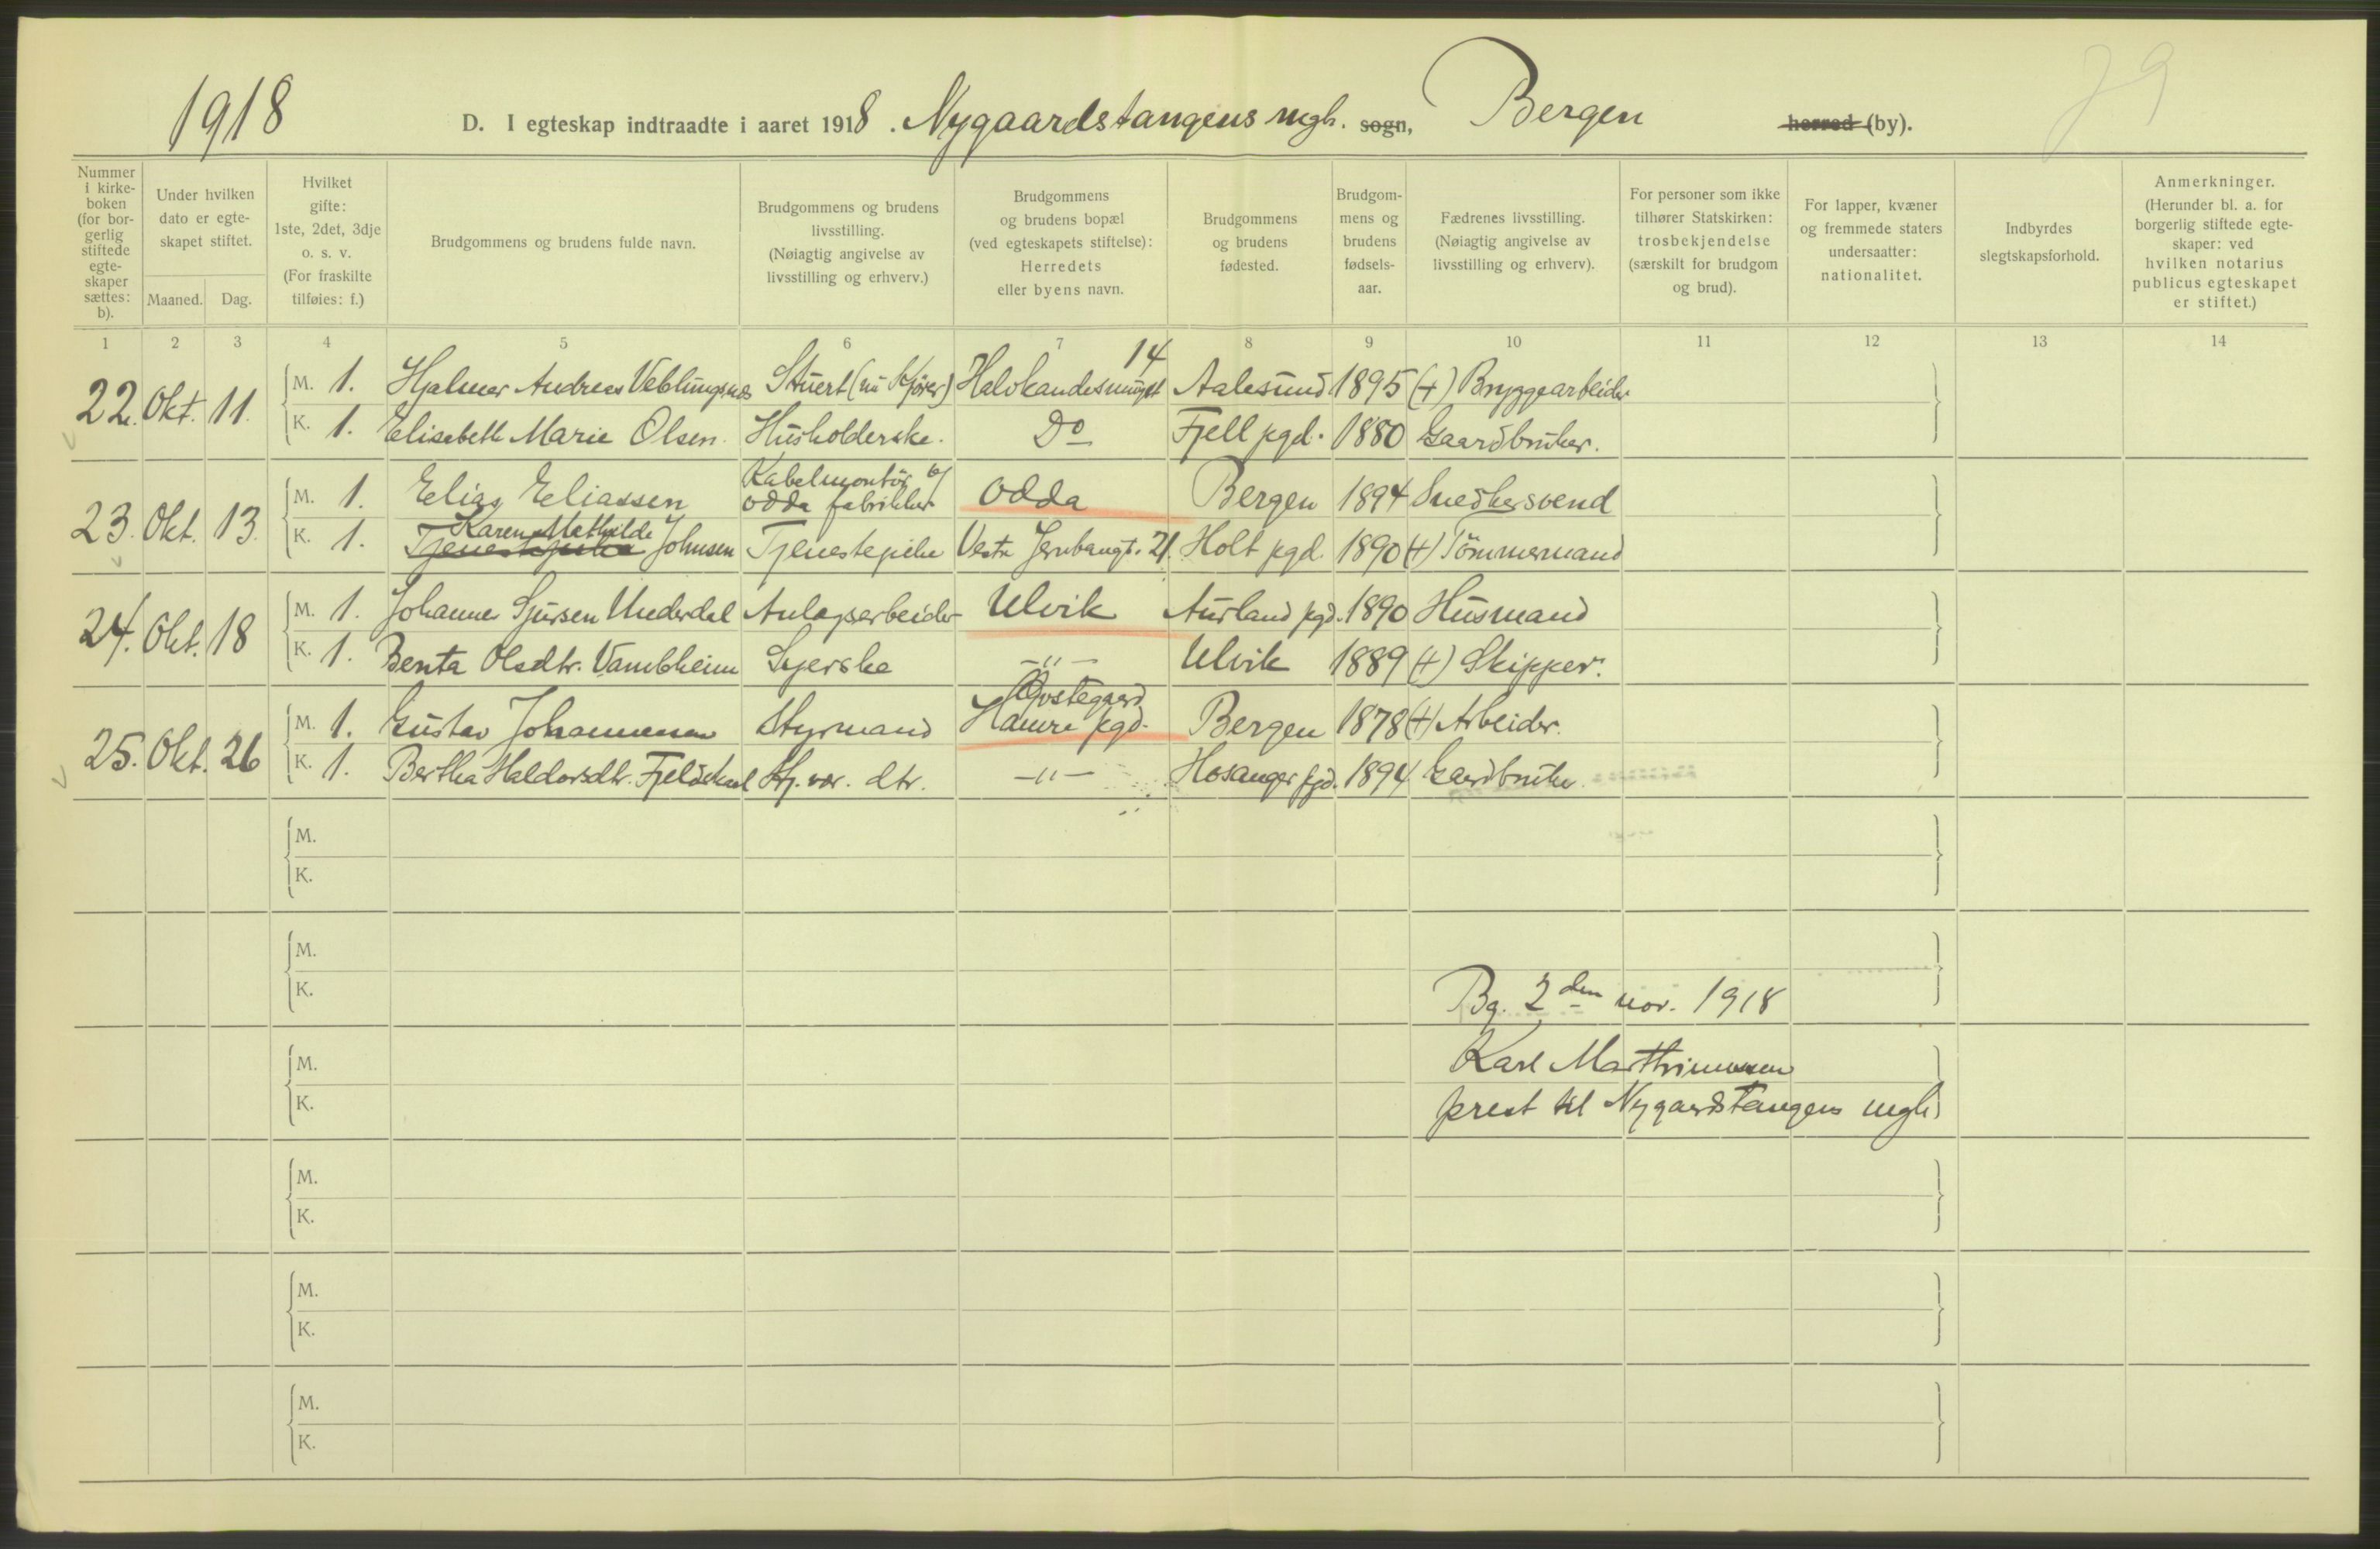 1918 D. I egteskap indtraadte i aaret 1918. Nygaardstangens mgh. sogn, Bergen herred (by). 79
Nummer i kirke-boken (for bor-gerlig stiftede egte-skaper sættes: b).
Under hvilken dato er egte-skapet stiftet.
Maaned. Dag.
Hvilket gifte: 1ste, 2det, 3dje o. s. v. (For fraskilte tilføies: f.)
Brudgommens og brudens fulde navn.
Brudgommens og brudens livsstilling. (Nøiagtig angivelse av livsstilling og erhverv.)
Brudgommens og brudens bopæl (ved egteskapets stiftelse): Herredets eller byens navn.
Brudgommens og brudens fødested.
Brudgom-mens og brudens fødsels-aar.
Fædrenes livsstilling. (Nøiagtig angivelse av livsstilling og erhverv).
For personer som ikke tilhører Statskirken: trosbekjendelse (særskilt for brudgom og brud).
For lapper, kvæner og fremmede staters undersaatter: nationalitet.
Indbyrdes slegtskapsforhold.
Anmerkninger. (Herunder bl. a. for borgerlig stiftede egte-skaper: ved hvilken notarius publicus egteskapet er stiftet.)
1 2 3 4 5 6 7 8 9 10 11 12 13 14
22. Okt. 11. M. 1. Hjalmar Andreas Veblungsnes Stuert (nu Kjører) Halvkandesmuget 14 Aalesund 1895 (+) Bryggearbeider
K. 1. Elisabeth Marie Olsen. Husholderske. Do Fjell pgd. 1880 Gaardbruker.
23. Okt. 13. M. 1. Elias Eliassen Kabelmontør v/ Odda fabrikker Odda Bergen 1894 Snedkersvend
K. 1. Tjenestepike Karen Mathilde Johnsen Tjenestepike Vestre Jernbanegt. 21. Holt pgd. 1890 (+) Tømmermand
24. Okt. 18 M. 1. Johannes Sjursen Underdal Anlægsarbeider Ulvik Aurland pgd. 1890 Husmand
K. 1. Benta Olsdtr. Vambheim Syerske -"- Ulvik 1889 (+) Skipper.
25. Okt. 26 M. 1. Gustav Johannessen Styrmand Hamre pgd. Bergen 1878 (+) Arbeider.
K. 1. Bertha Haldorsdtr. Fjeldskaal Hj. vær. dtr. -"- Hosanger pgd. 1894 Gaardbruker
M.
K.
M.
K.
Bg. 2den nov. 1918
M.
Karl Marthinussen
K.
prest til Nygaardstangens mgh.
M.
K.
M.
K.
M.
K.